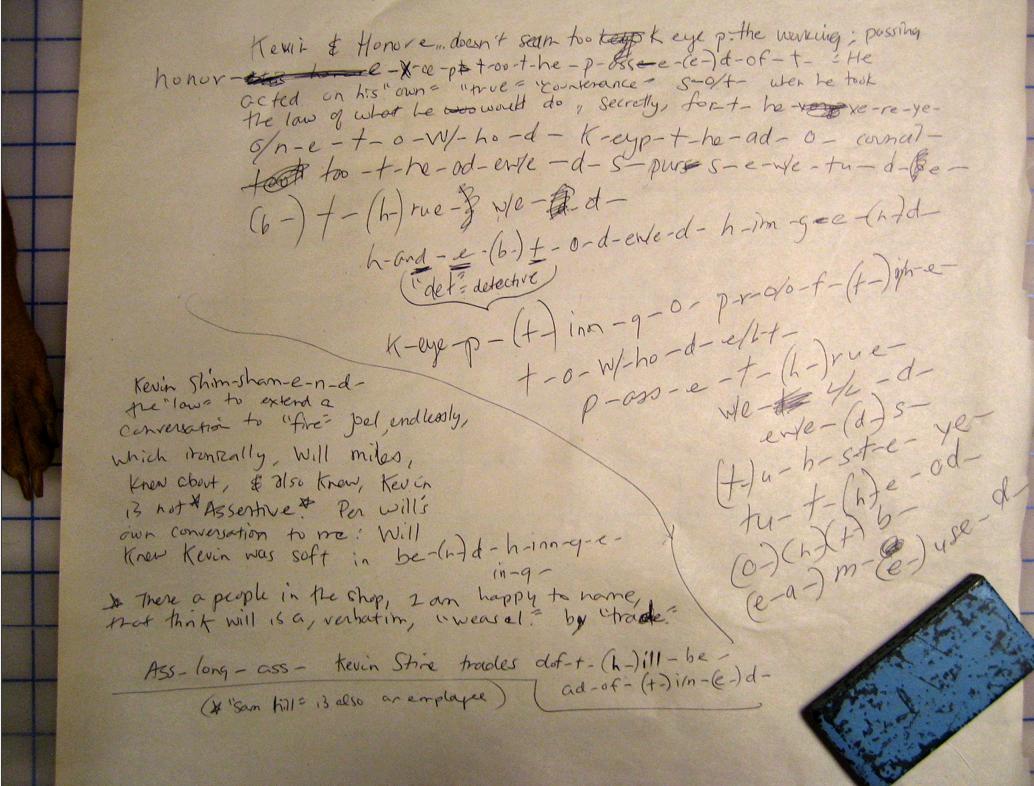 Kevin & Honore... doesn't seem too K eye p-the working; passing
honor e -X-ce-pt t-oo-t-he-p-oss-e-(e-)d-of-t- : He
acted on his "own" "true" "countenance" s-o/t- when he took
the law of what he would do, secretly, for-t- he xe-re-ye-
o/n-e-t-o-W/-ho-d- K-eyp-t-he-ad-o- council-
too-t-he-od-en/e-d-s-purs s-e-w/e-tu-d- e-
(b-) t-(h-)rue- w/e- d-
h-and-e-(b-)t-o-d-en/e-d- h-im-g-e-(n-)d-
"det" = detective
K-eye-p-(t-)inn-g-o- p-r-o/o-f-(t-) h-e-
t-o-W/-ho-d-e/b-t-
p-ass-e-t-(h-)rue-
w/e- -d-
en/e-(d-)s-
(t-)u-b-s-t-e- ye-
tu-t-(h-)e-ad-
(o-)(n-)(t-) b-
(e-a-)m-(e-)use-d-
Kevin Shim-sham-e-n-d-
the "law" to extend a
conversation to "fire" Joel, endlessly,
which ironically, Will miles,
knew about, & also knew, Kevin
is not *Assertive.* Per will's
own conversation to me: Will
knew Kevin was soft in be-(n-)d-h-inn-g-e-
in-g-
* There a people in the shop, I am happy to name,
that think will is a, verbatim, "weasel." by "trade."
Ass-long-ass- Kevin Stire trades dof-t-(h-)ill-be-
ad-of-(t-)i/n-(e-)d-
(* "Sam hill" is also an employee)